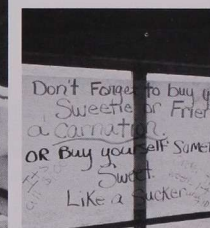 Don't Forget to buy y
Sweetie or Frien
a carnation.
OR Buy yourself Some
Sweet
Like a Sucker